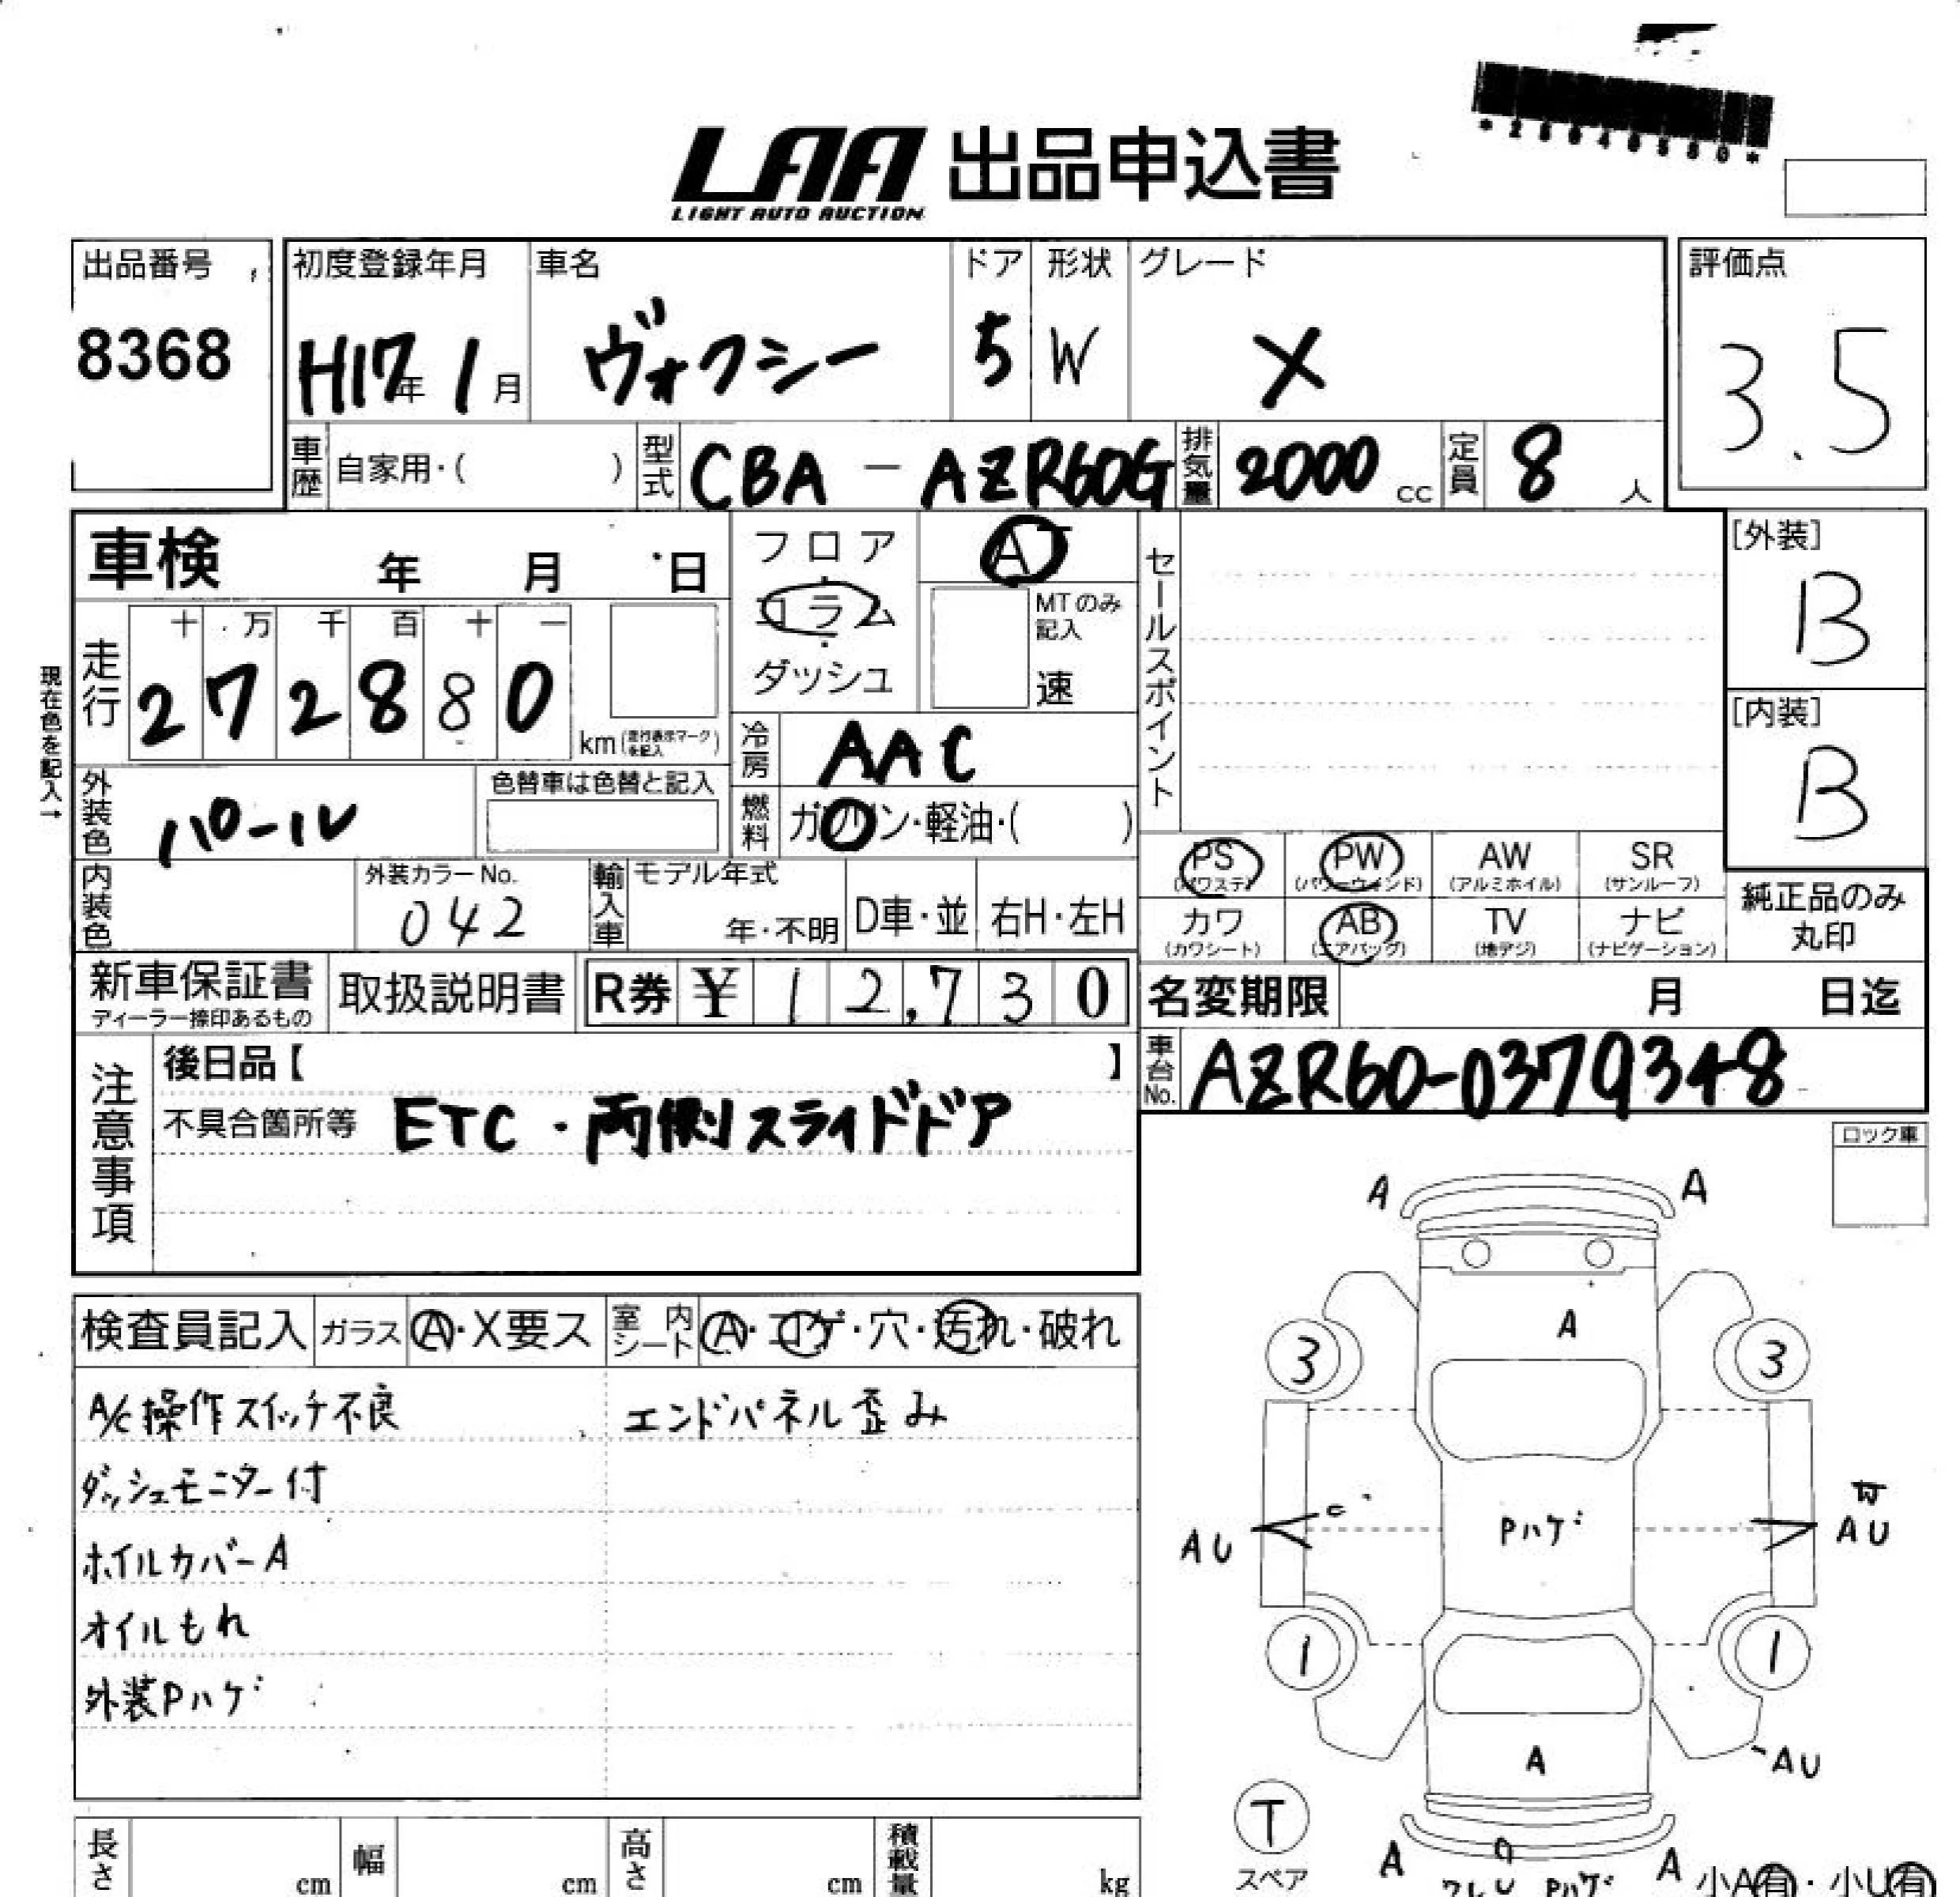 LAA 出品申込書
LIGHT AUTO AUCTION
出品番号
8368
初度登録年月
H17年 1月
車名
ヴォクシー
ドア
5
形状
W
グレード
X
評価点
3.5
車歴 自家用・( )
型式 CBA-AZR60G
排気量 2000 cc
定員 8 人
車検 年 月 日
フロア・コラム・ダッシュ
AT
MTのみ記入
速
セールスポイント
[外装]
B
[内装]
B
現在色を記入→
走行 十 万 千 百 十 一
2 7 2 8 8 0 km (走行表示マークを記入)
冷房 AAC
燃料 ガソリン・軽油・( )
外装色 パール
色替車は色替と記入
内装色
外装カラーNo.
042
輸入車
モデル年式
年・不明
D車・並
右H・左H
PS (パワステ)
PW (パワーウィンド)
AW (アルミホイル)
SR (サンルーフ)
カワ (カワシート)
AB (エアバッグ)
TV (地デジ)
ナビ (ナビゲーション)
純正品のみ
丸印
新車保証書
ディーラー捺印あるもの
取扱説明書
R券 ¥ 12,730
名変期限 月 日迄
車台No. AZR60-0379348
注意事項
後日品【 】
不具合箇所等 ETC・両側スライドドア
ロック車
検査員記入 ガラス A・X要ス 室内シート A・コゲ・穴・汚れ・破れ
A/C操作スイッチ不良
エンドパネル歪み
ダッシュモニター付
ホイルカバーA
オイルもれ
外装Pハゲ
A A
A
3 3
C
AU Pハゲ AU
1 1
A
AU
T
スペア
A A
Pハゲ
小A有・小U有
長さ cm
幅 cm
高さ cm
積載量 kg